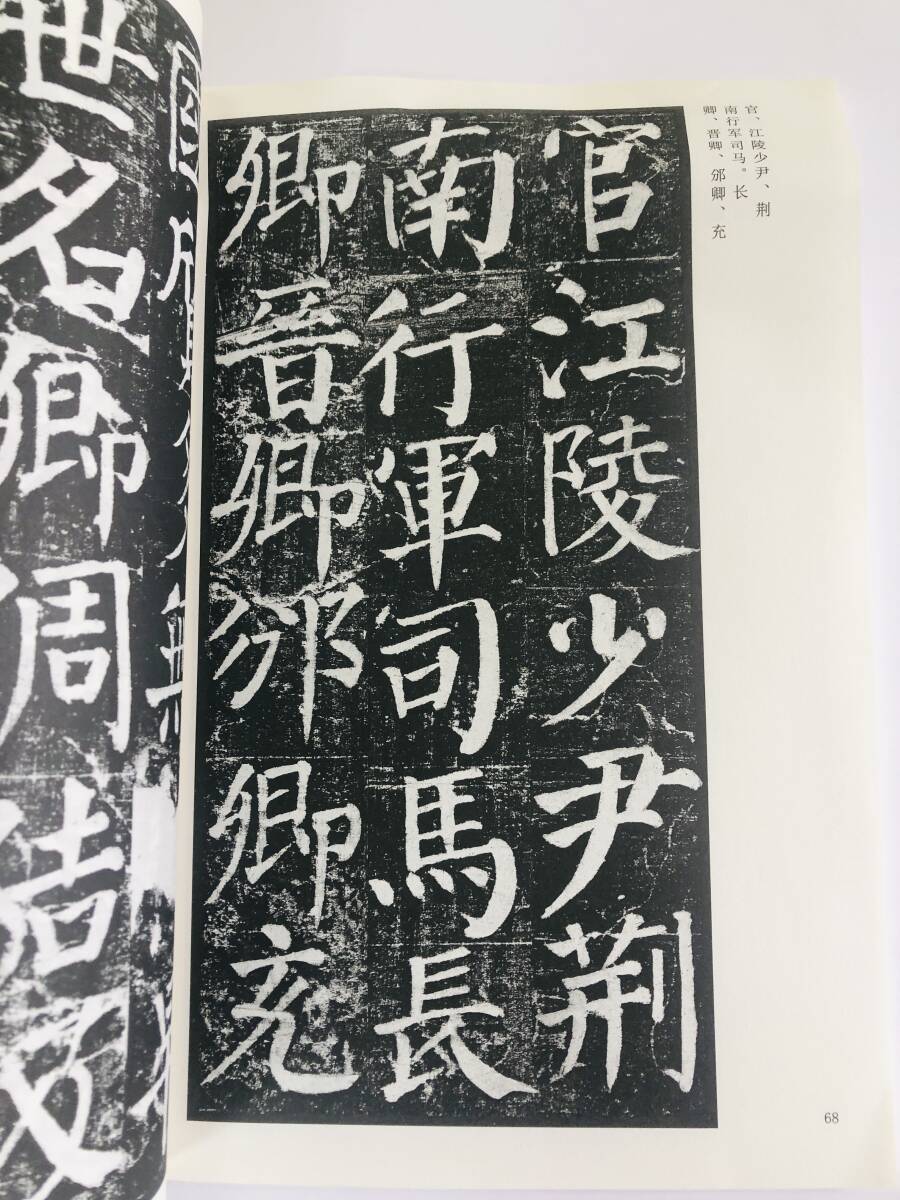 官、江陵少尹、荆
南行军司马。长
卿、晋卿、邠卿、充
官江陵少尹荆
南行軍司馬長
卿晉卿邠卿充
世名卿周
68